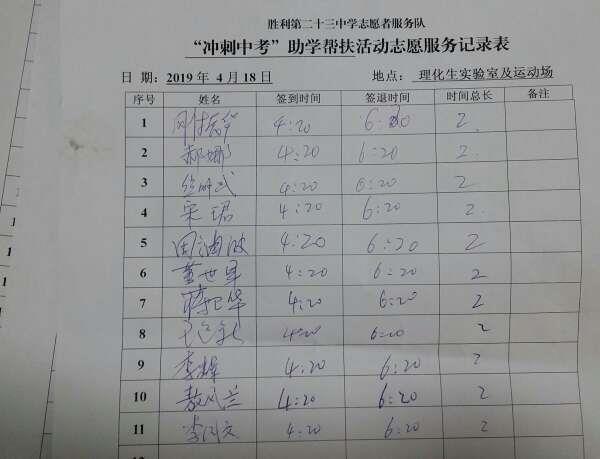 胜利第二十三中学志愿者服务队
“冲刺中考”助学帮扶活动志愿服务记录表
日 期：2019 年 4 月 18 日 地点：理化生实验室及运动场
序号 姓名 签到时间 签退时间 时间总长 备注
1 4:20 6:20 2
2 郝娜 4:20 6:20 2
3 4:20 6:20 2
4 宋珺 4:20 6:20 2
5 田海波 4:20 6:20 2
6 董世军 4:20 6:20 2
7 蒋卫华 4:20 6:20 2
8 4:20 6:20 2
9 李辉 4:20 6:20 2
10 敖凤兰 4:20 6:20 2
11 李国文 4:20 6:20 2